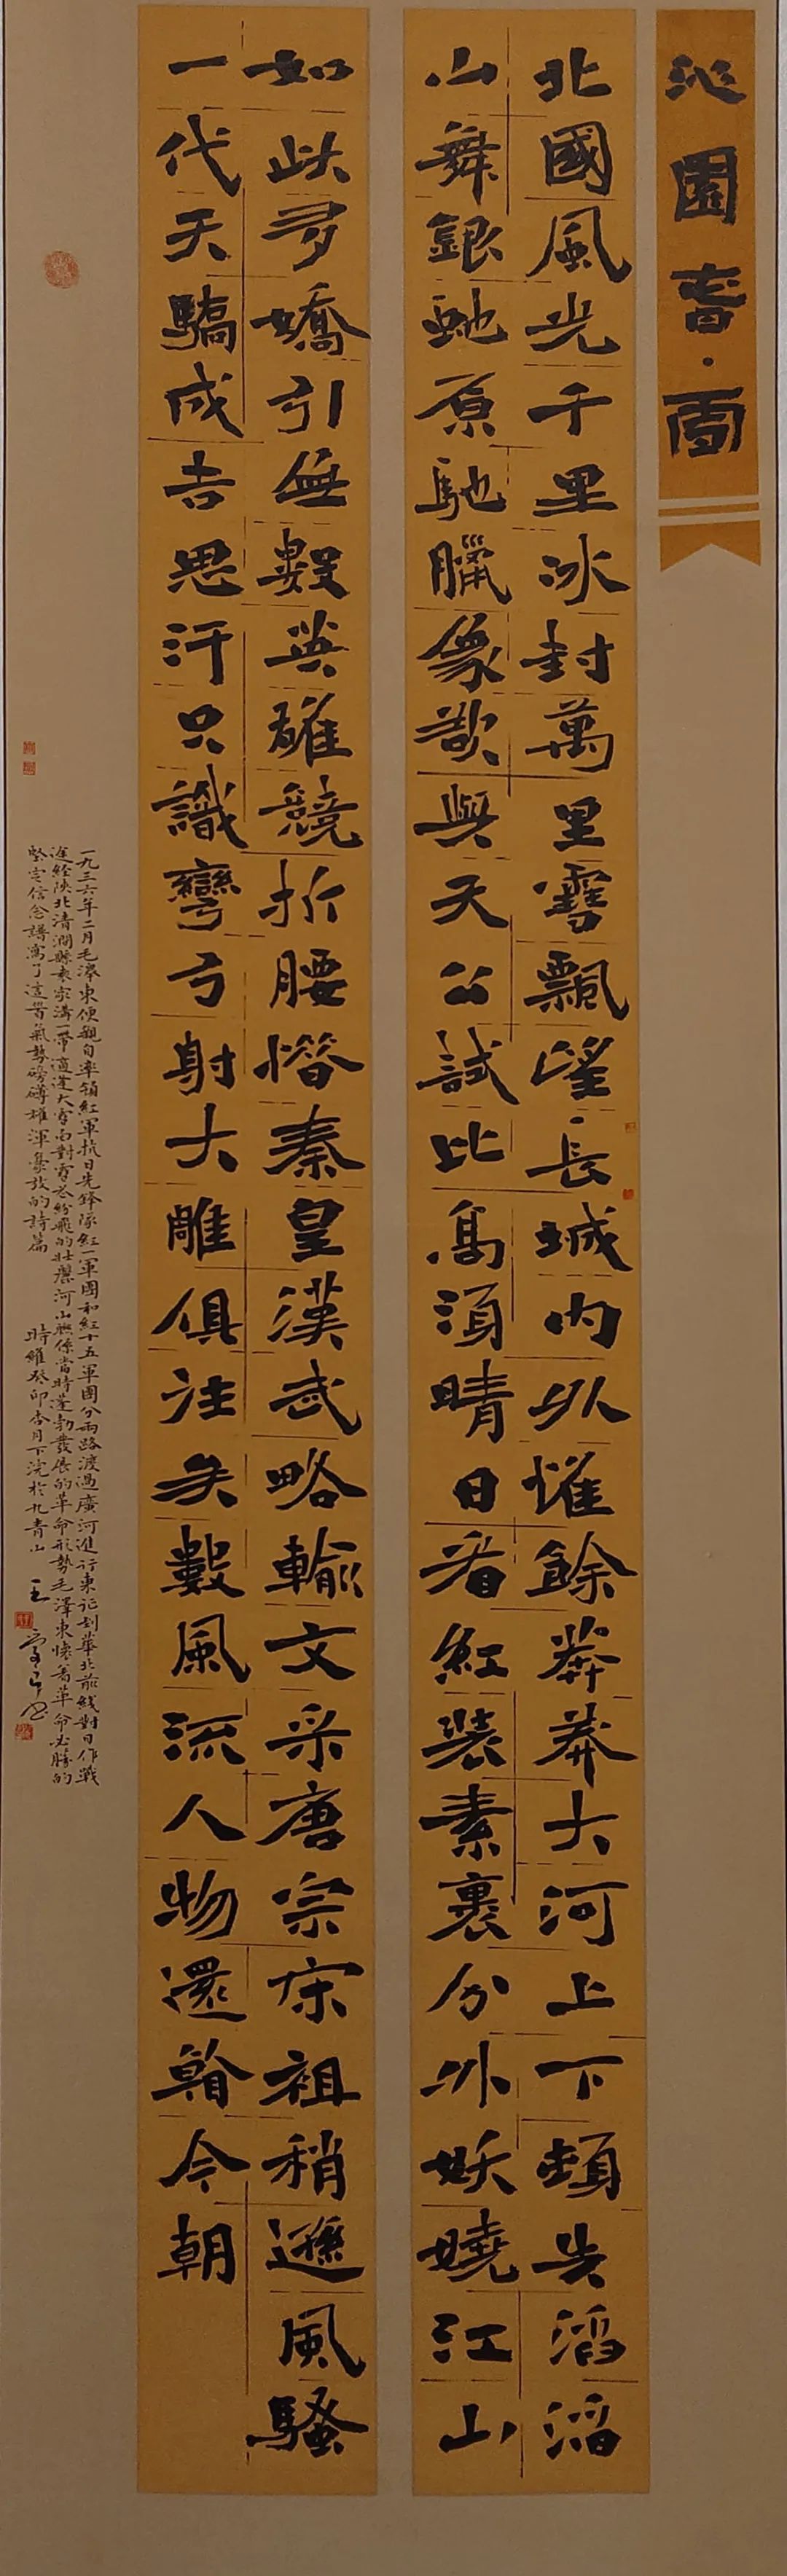 沁園春·雪
北國風光千里冰封萬里雪飄望長城內外惟餘莽莽大河上下頓失滔滔
山舞銀蛇原馳臘象欲與天公試比高須晴日看紅裝素裹分外妖嬈江山
如此多嬌引無數英雄競折腰惜秦皇漢武略輸文采唐宗宋祖稍遜風騷
一代天驕成吉思汗只識彎弓射大雕俱往矣數風流人物還看今朝
一九三六年二月毛澤東便親自率領紅軍抗日先鋒隊紅一軍團和紅十五軍團分兩路渡過廣河進行東征到華北前綫對日作戰
途經陝北清澗縣袁家溝一帶適逢大雪面對雪花紛飛的壯麗河山聯係當時蓬勃發展的革命形勢毛澤東懷着革命必勝的
堅定信念譜寫了這首氣勢磅礴雄渾豪放的詩篇 時維癸卯杏月下浣於九青山 王